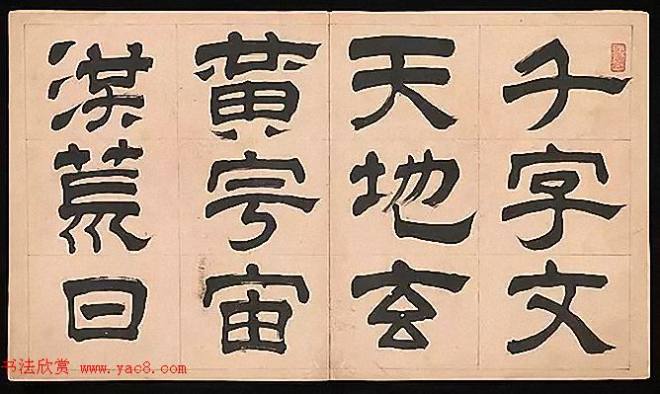 千字文
天地玄
黃宇宙
洪荒日
书法欣赏 www.yac8.com